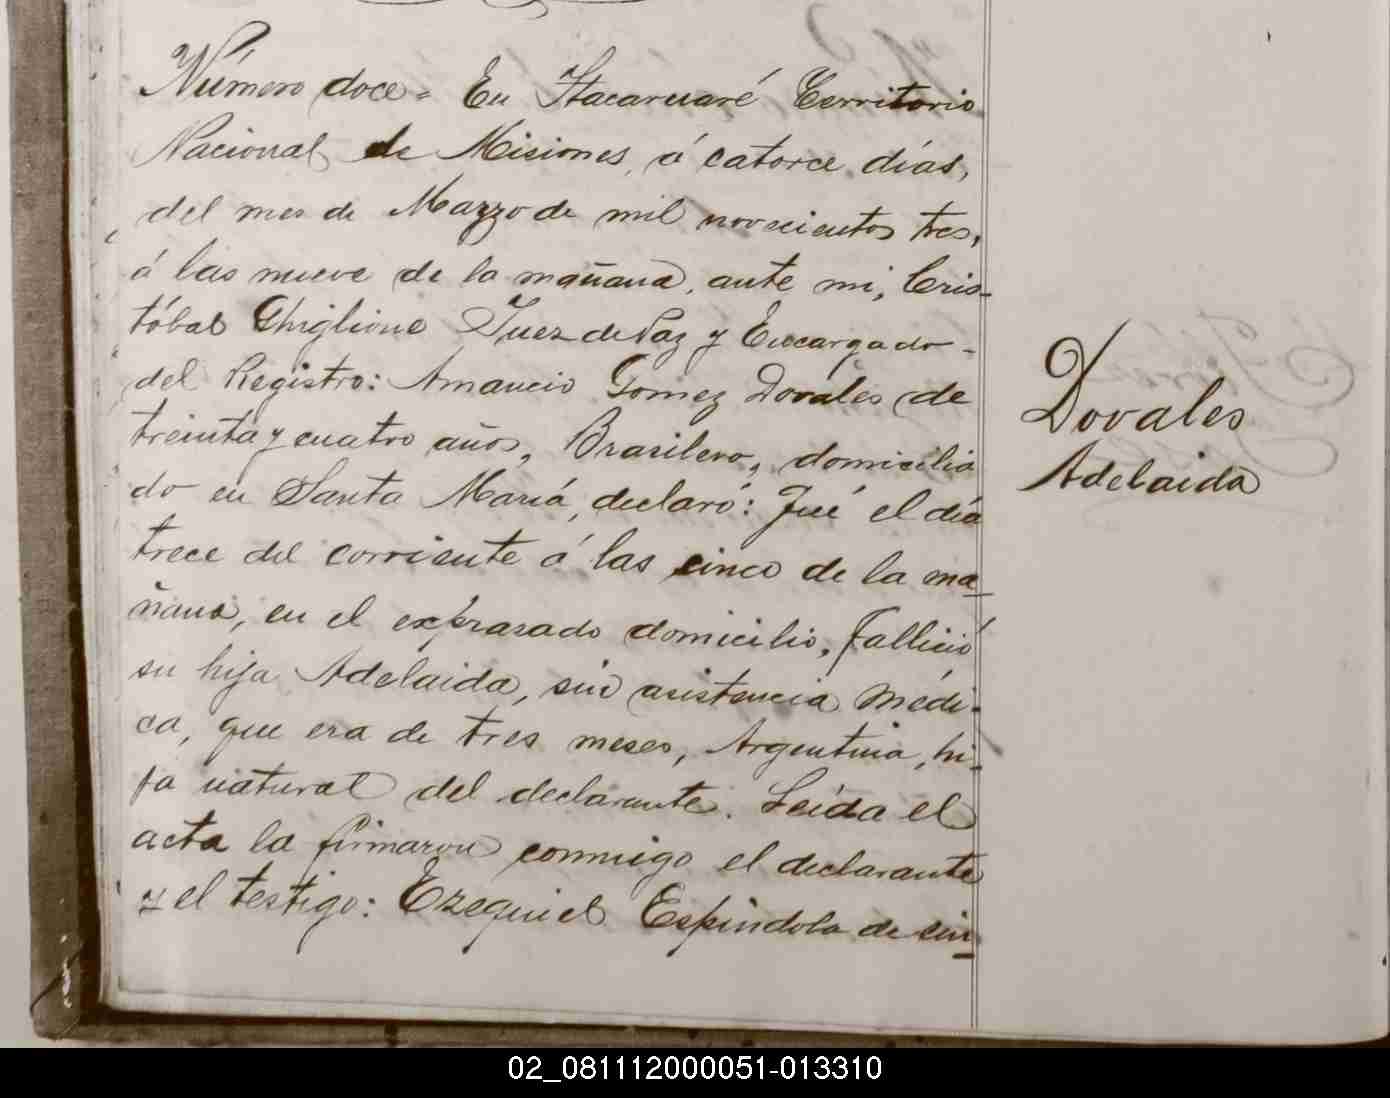 Número doce = En Itacaruaré Territorio
Nacional de Misiones, á catorce días,
del mes de Marzo de mil novecientos tres,
á las nueve de la mañana, ante mi, Cris-
tóbal Ghiglione Juez de Paz y Encargado-
del Registro: Amancio Gomez Dovales de
treinta y cuatro años, Brasilero, domicilia
do en Santa María, declaró: Fué el día
trece del corriente á las cinco de la ma-
ñana, en el exprasado domicilio, fallició
su hija Adelaida, sin asistencia médi-
ca, que era de tres meses, Argentina, hi-
ja natural del declarante. Leída el
acta la firmaron conmigo el declarante
y el testigo: Ezequiel Espindola de cin-
Dovales
Adelaida
02_081112000051-013310